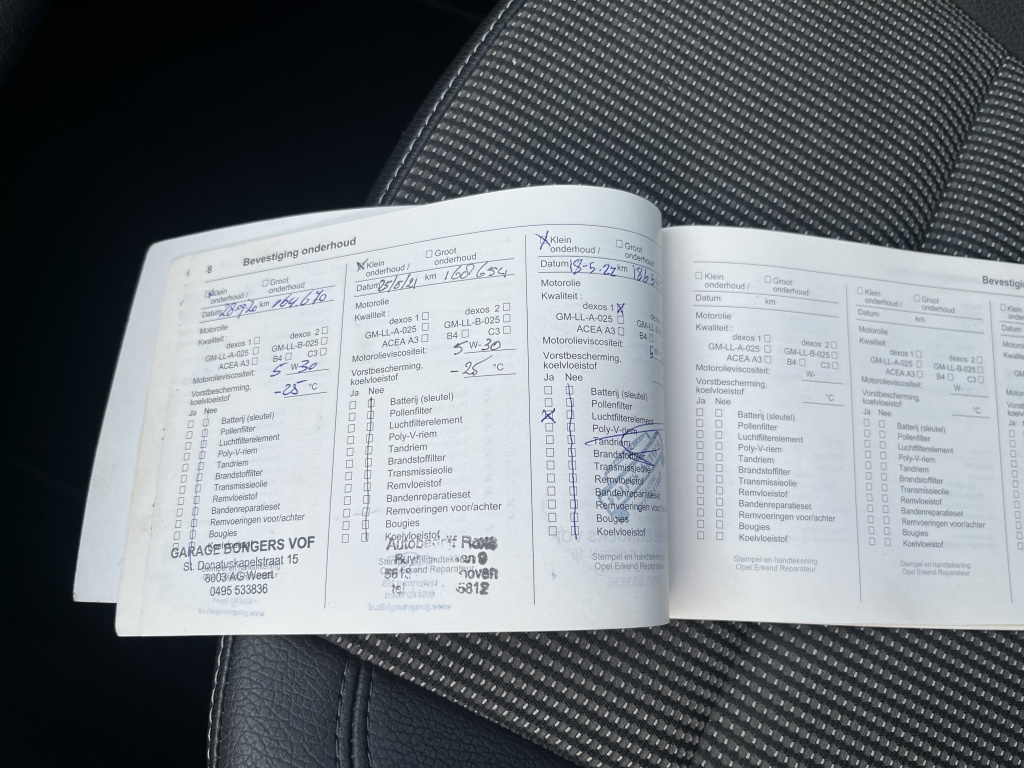 8 Bevestiging onderhoud
Klein onderhoud / Groot onderhoud
Datum 28-09-20 km 164.670
Motorolie
Kwaliteit :
dexos 1 dexos 2
GM-LL-A-025 GM-LL-B-025
ACEA A3 B4 C3
Motorolieviscositeit: 5 W-30
Vorstbescherming,
koelvloeistof -25 °C
Ja Nee
Batterij (sleutel)
Pollenfilter
Luchtfilterelement
Poly-V-riem
Tandriem
Brandstoffilter
Transmissieolie
Remvloeistof
Bandenreparatieset
Remvoeringen voor/achter
Bougies
Koelvloeistof
GARAGE BONGERS VOF
St. Donatuskapelstraat 15
6003 AG Weert
0495 533836
Klein onderhoud / Groot onderhoud
Datum 25/5/21 km 168654
Motorolie
Kwaliteit :
dexos 1 dexos 2
GM-LL-A-025 GM-LL-B-025
ACEA A3 B4 C3
Motorolieviscositeit: 5 W-30
Vorstbescherming,
koelvloeistof -25 °C
Ja Nee
Batterij (sleutel)
Pollenfilter
Luchtfilterelement
Poly-V-riem
Tandriem
Brandstoffilter
Transmissieolie
Remvloeistof
Bandenreparatieset
Remvoeringen voor/achter
Bougies
Koelvloeistof
Autobedrijf
tel 5812
Klein onderhoud / Groot onderhoud
Datum 18-5-22 km
Motorolie
Kwaliteit :
dexos 1
GM-LL-A-025 GM-LL-
ACEA A3 B4
Motorolieviscositeit:
Vorstbescherming,
koelvloeistof
Ja Nee
Batterij (sleutel)
Pollenfilter
Luchtfilterelement
Poly-V-riem
Tandriem
Brandstoffilter
Transmissieolie
Remvloeistof
Bandenreparatieset
Remvoeringen voor/a
Bougies
Koelvloeistof
Stempel en handtekening
Opel Erkend Reparateur
Klein onderhoud / Groot onderhoud
Datum km
Motorolie
Kwaliteit :
dexos 1 dexos 2
GM-LL-A-025 GM-LL-B-025
ACEA A3 B4 C3
Motorolieviscositeit: W-
Vorstbescherming,
koelvloeistof °C
Ja Nee
Batterij (sleutel)
Pollenfilter
Luchtfilterelement
Poly-V-riem
Tandriem
Brandstoffilter
Transmissieolie
Remvloeistof
Bandenreparatieset
Remvoeringen voor/achter
Bougies
Koelvloeistof
Stempel en handtekening
Opel Erkend Reparateur
Bevestigi
Klein onderhoud / Groot onderhoud
Datum km
Motorolie
Kwaliteit :
dexos 1 dexos 2
GM-LL-A-025 GM-LL-B-025
ACEA A3 B4 C3
Motorolieviscositeit: W-
Vorstbescherming,
koelvloeistof °C
Ja Nee
Batterij (sleutel)
Pollenfilter
Luchtfilterelement
Poly-V-riem
Tandriem
Brandstoffilter
Transmissieolie
Remvloeistof
Bandenreparatieset
Remvoeringen voor/achter
Bougies
Koelvloeistof
Stempel en handtekening
Opel Erkend Reparateur